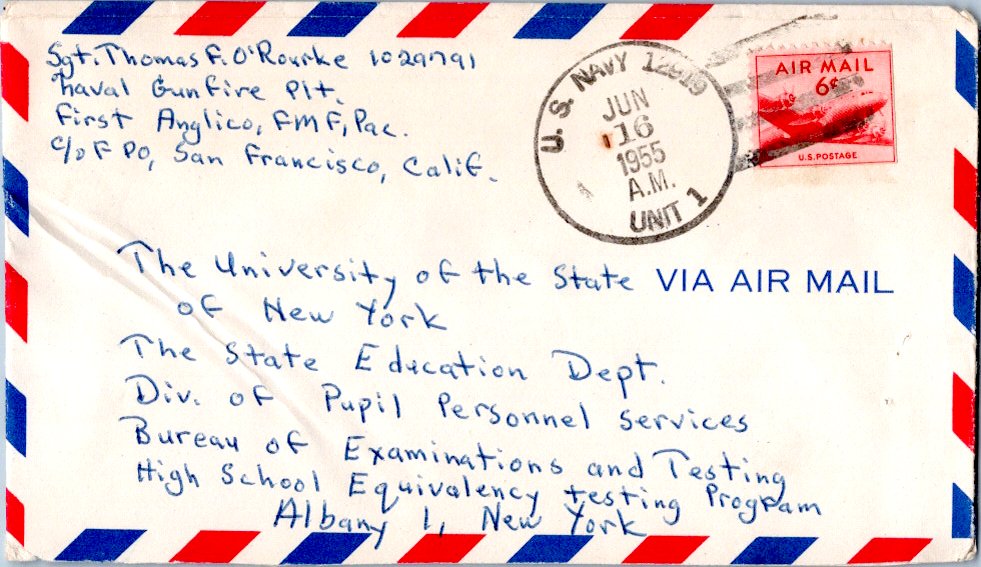 Sgt. Thomas F. O'Rourke 1029791
Naval Gunfire Plt.
First Anglico, FMF, Pac.
c/o FPO, San Francisco, Calif.
U.S. NAVY
JUN
16
1955
A.M.
UNIT 1
AIR MAIL
6¢
U.S. POSTAGE
The University of the State
of New York
VIA AIR MAIL
The State Education Dept.
Div. of Pupil Personnel Services
Bureau of Examinations and Testing
High School Equivalency testing Program
Albany 1, New York